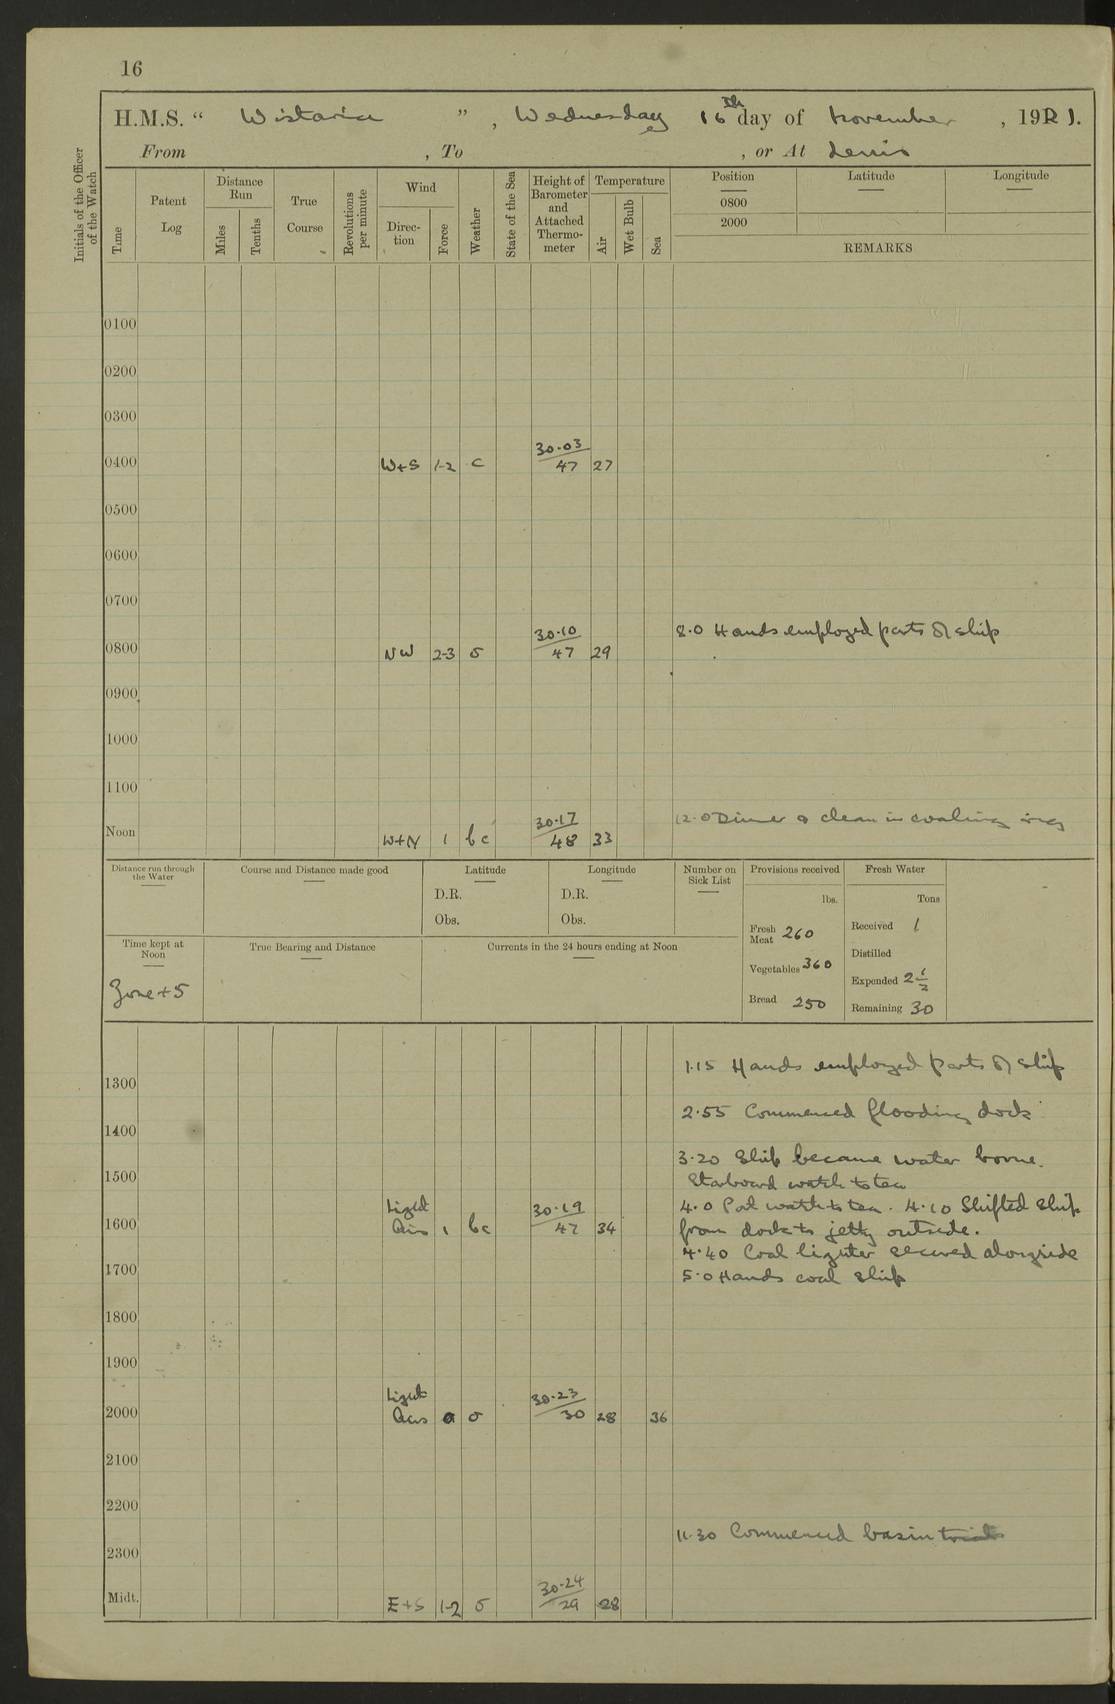 16
H.M.S. “ Wistaria ”, Wednesday 16th day of November, 1921.
From , To , or At Levis
Initials of the Officer of the Watch
Time
Patent Log
Distance Run
Miles
Tenths
True Course
Revolutions per minute
Wind
Direction
Force
Weather
State of the Sea
Height of Barometer and Attached Thermometer
Temperature
Air
Wet Bulb
Sea
Position
Latitude
Longitude
0800
2000
REMARKS
0100
0200
0300
0400 W+S 1-2 c 30.03/47 27
0500
0600
0700
8.0 Hands employed parts of ship
0800 NW 2-3 o 30.10/47 29
0900
1000
1100
12.0 Dinner & clean in coaling rig
Noon W+N 1 bc 30.17/48 33
Distance run through the Water
Course and Distance made good
Latitude
D.R.
Obs.
Longitude
D.R.
Obs.
Number on Sick List
Provisions received
lbs.
Fresh Meat 260
Vegetables 360
Bread 250
Fresh Water
Tons
Received 1
Distilled
Expended 2 1/2
Remaining 30
Time kept at Noon
Zone +5
True Bearing and Distance
Currents in the 24 hours ending at Noon
1.15 Hands employed parts of ship
1300
2.55 Commenced flooding dock
1400
3.20 Ship became water borne.
1500
Starboard watch to tea
4.0 Port watch to tea. 4.10 Shifted ship
1600 Light Airs 1 bc 30.19/47 34
from dock to jetty outside.
4.40 Coal lighter secured alongside
1700
5.0 Hands coal ship
1800
1900
2000 Light Airs o 30.23/30 28 36
2100
2200
11.30 Commenced basin trials
2300
Midt. E+S 1-2 o 30.24/29 28